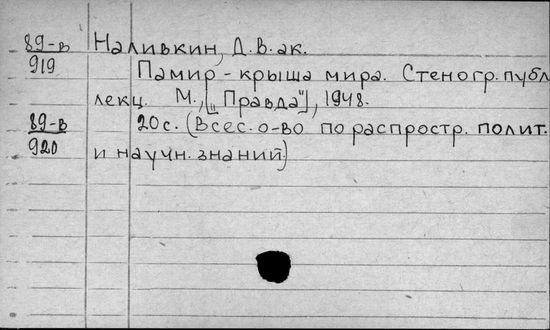 89-в Наливкин, Д.В. ак.
919 Памир - крыша мира. Стеногр. публ.
лекц. М., ["Правда"], 1948.
89-в 20с. (Всес. о-во по распростр. полит.
920 и научн. знаний)